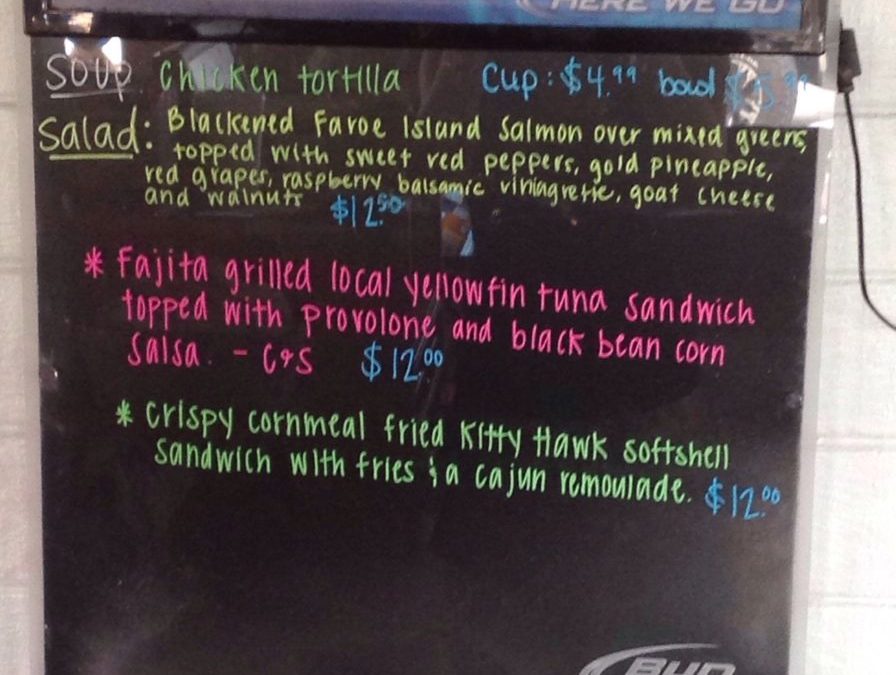 HERE WE GO
Soup Chicken tortilla Cup: $4.99 bowl $5.99
Salad: Blackened Faroe Island Salmon over mixed greens,
topped with sweet red peppers, gold pineapple,
red grapes, raspberry balsamic viniagrette, goat cheese
and walnuts $12.50
* Fajita grilled local yellowfin tuna sandwich
topped with provolone and black bean corn
salsa. - C+S $12.00
* Crispy cornmeal fried Kitty Hawk softshell
sandwich with fries & a cajun remoulade. $12.00
BUD